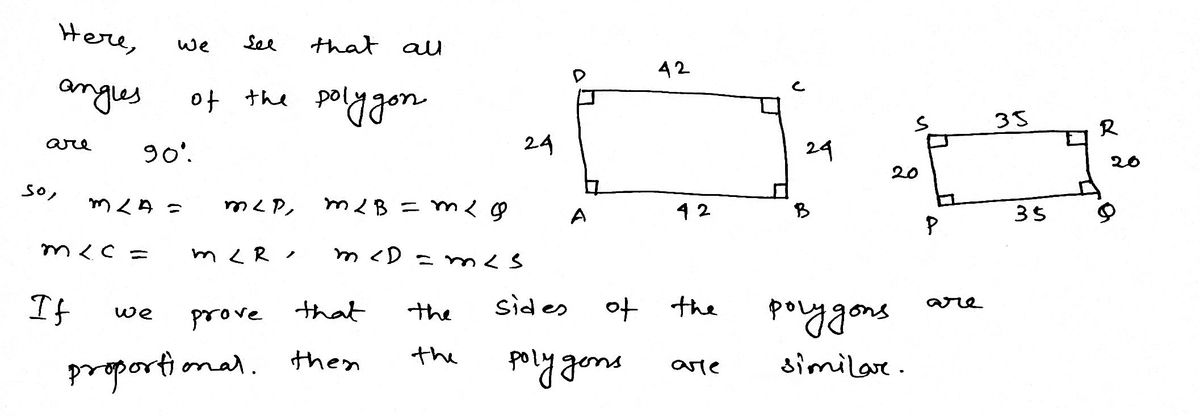 Here, we see that all
angles of the polygon
are 90°.
so, m<A = m<P, m<B = m<Q
m<C = m<R, m<D = m<S
If we prove that the sides of the polygons are
proportional. then the polygons are similar.
D 42 C
24 24
A 42 B
S 35 R
20 20
P 35 Q